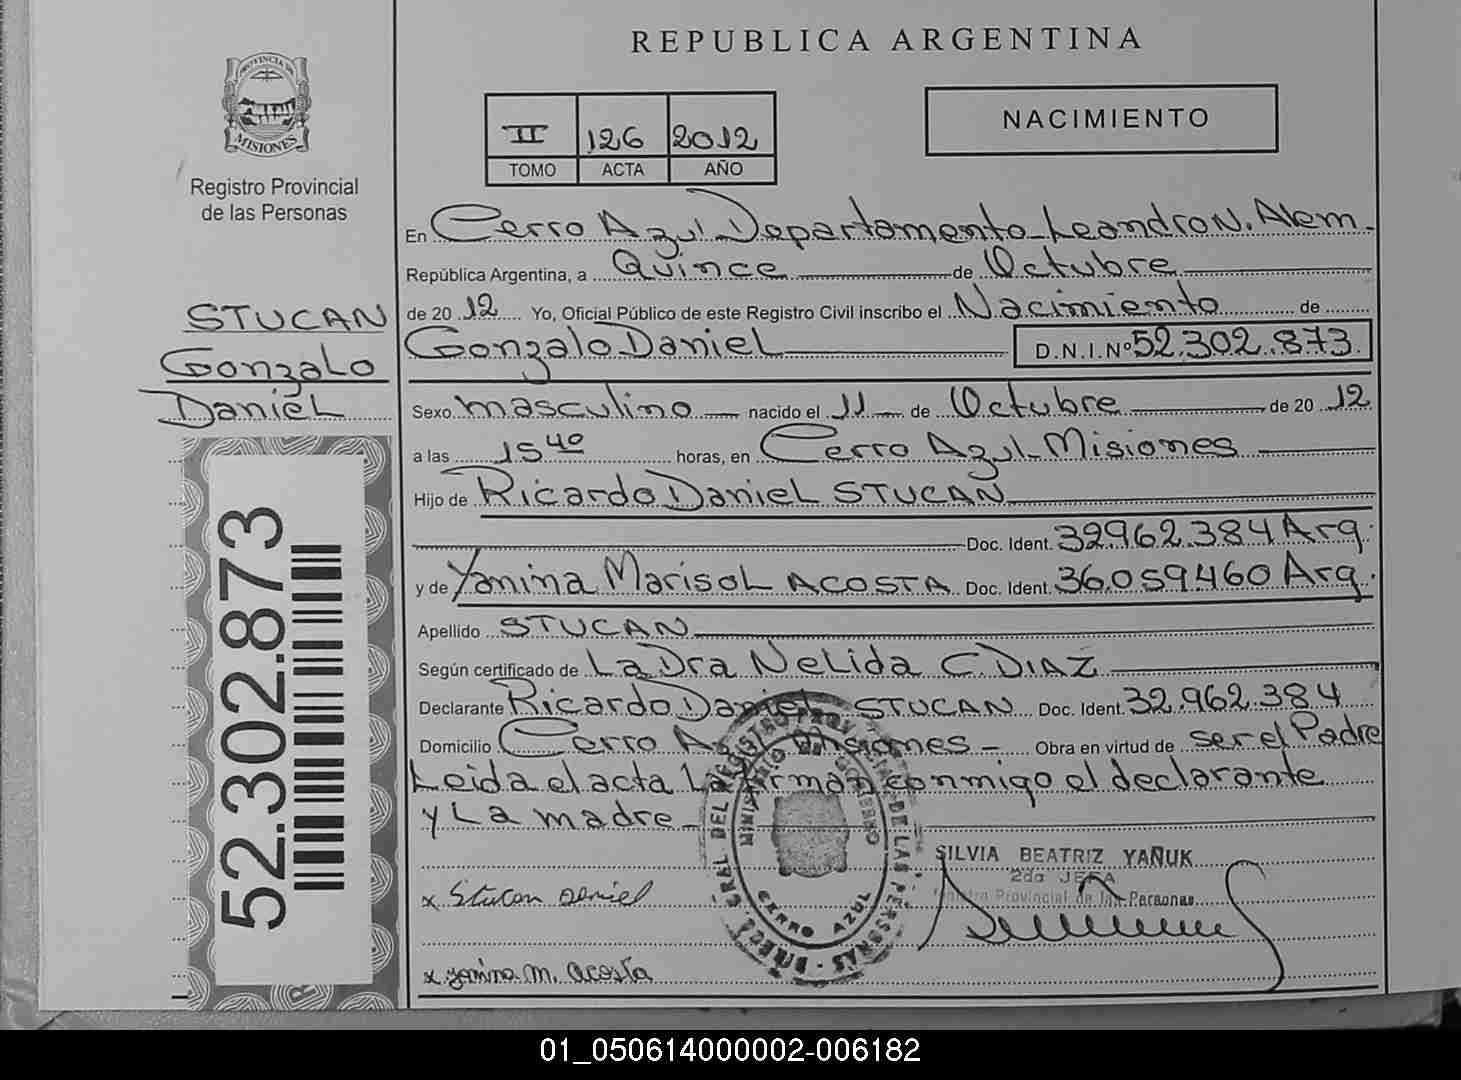 REPUBLICA ARGENTINA
PROVINCIA DE
MISIONES
Registro Provincial
de las Personas
II 126 2012
TOMO ACTA AÑO
NACIMIENTO
STUCAN
Gonzalo
Daniel
52.302.873
En Cerro Azul Departamento Leandro N. Alem.
República Argentina, a Quince de Octubre
de 2012 Yo, Oficial Público de este Registro Civil inscribo el Nacimiento de
Gonzalo Daniel D.N.I.Nº 52.302.873.
Sexo masculino nacido el 11 de Octubre de 2012
a las 15 40 horas, en Cerro Azul - Misiones
Hijo de Ricardo Daniel STUCAN
Doc. Ident. 32962.384 Arg.
y de Yanina Marisol ACOSTA Doc. Ident. 36.059.460 Arg.
Apellido STUCAN
Según certificado de La Dra Nelida C. DIAZ
Declarante Ricardo Daniel STUCAN Doc. Ident. 32.962.384
Domicilio Cerro Azul Misiones - Obra en virtud de ser el Padre
Leida el acta la firman conmigo el declarante
y La madre
SILVIA BEATRIZ YAÑUK
2da JEFA
Registro Provincial de las Personas
x Stucan Daniel
x yanina m. acosta
CERRO AZUL
01_050614000002-006182